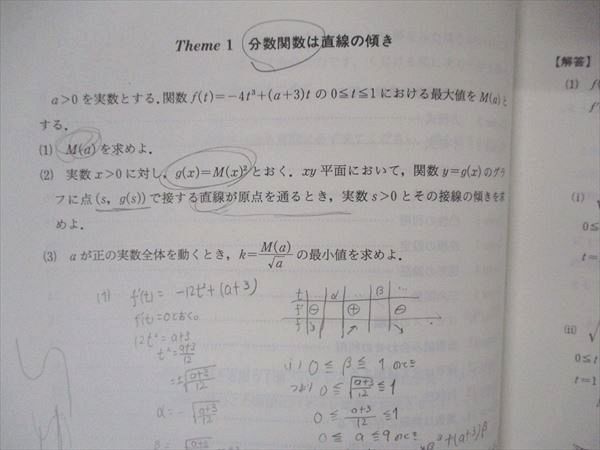 Theme 1 分数関数は直線の傾き
a>0を実数とする.関数f(t)=−4t³+(a+3)tの0≦t≦1における最大値をM(a)と
する.
(1) M(a)を求めよ.
(2) 実数x>0に対し,g(x)=M(x)²とおく.xy平面において,関数y=g(x)のグラ
フに点(s, g(s))で接する直線が原点を通るとき,実数s>0とその接線の傾きを求
めよ.
(3) aが正の実数全体を動くとき,k=M(a)/√a の最小値を求めよ.
(1) f'(t) = −12t²+(a+3)
f'(t)=0とおく。
12t² = a+3
t² = (a+3)/12
=±√((a+3)/12)
α = −√((a+3)/12)
t … α … β …
f' ⊖ ⊕ ⊖
i) 0 ≦ β ≦ 1 のとき
つまり 0 ≦ √((a+3)/12) ≦ 1
0 ≦ (a+3)/12 ≦ 1
0 ≦ a ≦ 9のとき
【解答】
(1) f
f'
(i) √
0≦
t=
(ii) √
0≦t
t=1